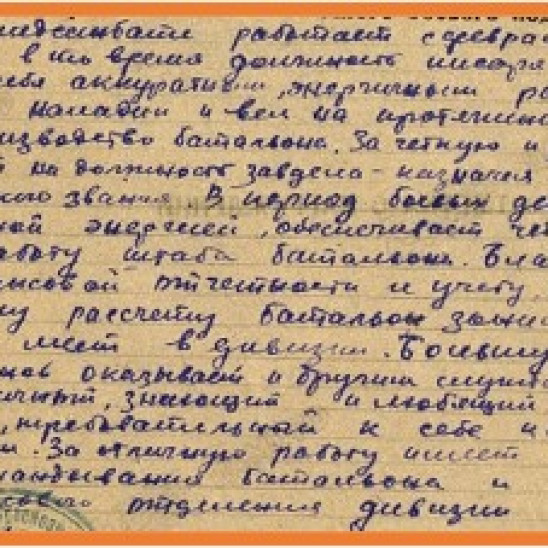 медсанбате работает с февра
в то время должность писаря
себя аккуратным, энергичным ра
наладил и вел на протяжении
изводство батальона. За четкую и
на должность завдела - назначен
кого звания. В период боевых де
ной энергией, обеспечивает че
работу штаба батальона. Бла
нсовой отчетности и учету,
му рассчету батальон зани
мест в дивизии. Боевую
оказывает и другим служб
знающий и любящий
, требовательный к себе и
и. За отличную работу имеет
мандывания батальона и
сового отделения дивизии